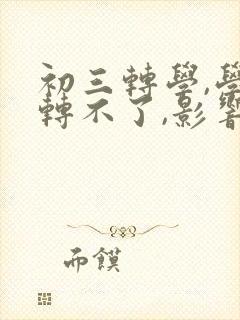 初三轉學,學
轉不了,影響
而饃